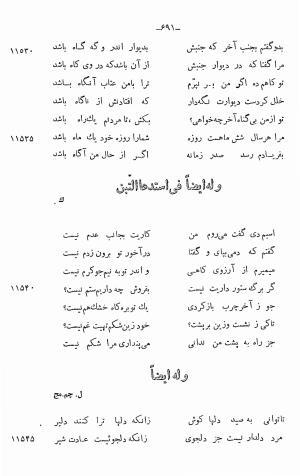 ـ۶۹۱ـ
بدوگفتم بجنب آخر که جنبش بدیوار اندر و که گاه باشد ۱۱۵۳۰
مرا گفتا که در دیوار جنبش از آن باشدکه در وی کاه باشد
تو کاهم ده اگر من بر نپرّم ترا بامن عتاب آنگاه باشد
خلل کردست دیوارت نگه‌دار که افتادنش از ناگاه باشد
تو ازمن بی‌گناه آخرچه‌خواهی؟ بکش، تا مردم یك‌راه باشد
مرا هرسال شش ماهست روزه شمارا روزه خود یك ماه باشد ۱۱۵۳۵
بفریادم رسد صدر زمانه اگر از حال من آگاه باشد
وله ایضاً فی استدعاء التبن
ك .
اسبم دی گفت می‌روم من کاریت بجانب عدم نیست
گفتم که دمی‌بپای و گفتا درآخور تو برون زدم نیست
میمیرم از آرزوی کاهی و اندر توبه نیم‌جوکرم نیست
گر برگ ستور داریت نیست بفروش چه داریم‌ستم نیست؟ ۱۱۵۴۰
جو ز آخرچرب بازکردی یك توبره‌کاه خشك‌هم‌نیست؟
تاکی ز نشست وزین برپشت؟ خود زین‌شکم‌تهیت غم‌نیست؟
جز راه به پشت من ندانی می‌پنداری مرا شکم نیست
وله ایضاً
ل. چم.مج
تاتوانی به صید دلها کوش زانکه دلها ترا کنند دلیر
مرد دلدار نیست جز دلجوی زانکه دلجوئیست عادت شیر ۱۱۵۴۵